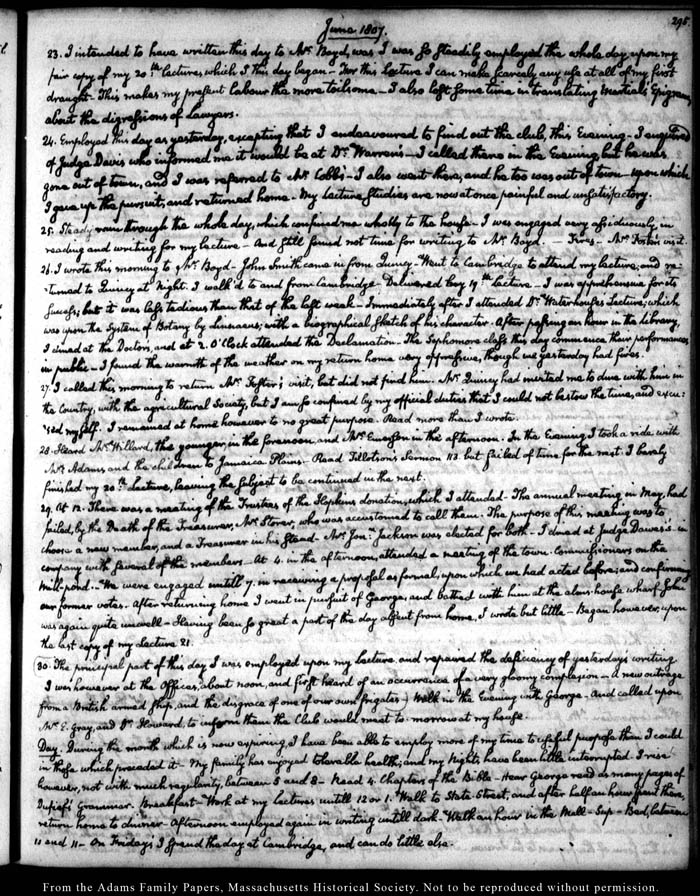 295.
June 1807.
23. I intended to have written this day to Mr. Boyd, was I was so steadily employed the whole day upon my
fair copy of my 20th. lecture, which I this day began — For this lecture I can make scarcely any use at all of my first
draught. This makes my present labour the more toilsome — I also lost some time in translating Martial's Epigram
about the digressions of Lawyers.
24. Employed this day as yesterday, excepting that I endeavoured to find out the club, this Evening. I enquired
of Judge Davis who informed me it would be at Dr. Warren's — I called there in the Evening but he was
gone out of town, and I was referred to Mr. Cobb's — I also went there, and he too was out of town — upon which
I gave up the pursuit, and returned home. My lecture studies are now at once painful and unsatisfactory.
25. Steady rain through the whole day, which confined me wholly to the house — I was engaged very assiduously, in
reading and writing for my lecture — And still found not time for writing to Mr. Boyd. — Fires — Mr. Foster visit.
26. I wrote this morning to Mr. Boyd — John Smith came in from Quincy — Went to Cambridge to attend my lecture, and re-
turned to Quincy at Night. I walk'd to and from Cambridge — Delivered my 19th. lecture — I was apprehensive for its
success; but it was less tedious than that of the last week — Immediately after I attended Dr. Waterhouse's Lecture, which
was upon the System of Botany by Linnaeus; with a biographical sketch of his character. After passing an hour in the library,
I dined at the Doctors, and at 2. O'Clock attended the Declamation — The Sophomore class this day commence their performances
in public — I found the warmth of the weather on my return home very oppressive, though we yesterday had fires.
27. I called this morning to return Mr. Foster's visit, but did not find him. Mr. Quincy had invited me to dine with him in
the Country, with the agricultural Society, but I am so confined by my official duties that I could not bestow the time, and excu-
sed myself. I remained at home however to no great purpose. Read more than I wrote.
28. Heard Mr. Willard, the younger, in the forenoon and Mr. Emerson in the afternoon. In the Evening I took a ride with
Mrs. Adams and the children to Jamaica Plains — Read Tillotson's Sermon 113. but failed of time for the next. I barely
finished my 20th. Lecture, leaving the subject to be continued in the next.
29. At 12. There was a meeting of the Trustees of the Hopkins donation, which I attended — The annual meeting in May, had
failed, by the Death of the Treasurer, Mr. Storer, who was accustomed to call them. The purpose of this meeting was to
choose a new member, and a Treasurer in his Stead — Mr. Jon: Jackson was elected for both — I dined at Judge Dawes's in
company with several of the members — At 4. in the afternoon attended a meeting of the town Commissioners on the
Mill-pond. — We were engaged untill 7. in receiving a proposal as formal, upon which we had acted before; and confirming
our former votes. After returning home I went in pursuit of George, and bathed with him at the alms-house wharf. John
was again quite unwell — Having been so great a part of the day absent from home, I wrote but little — Began however, upon
the last copy of my lecture 21.
30. The principal part of this day I was employed upon my lecture and repaired the deficiency of yesterday's writing
I was however at the Offices, about noon, and first heard of an occurrence of a very gloomy complexion — A new outrage
from a British armed ship, and the disgrace of one of our own frigates — Walk in the Evening with George. And called upon
Mr. E. Gray, and Dr. Howard, to inform them the Club would meet to-morrow at my house
Day. During the month which is now expiring, I have been able to employ more of my time to useful purpose than I could
in those which preceded it — My family has enjoyed tolerable health; and my Nights have been little interrupted. I rise
however, not with much regularity, between 5 and 8 — Read 4. Chapters of the Bible — Hear George read as many pages of
Dufief's Grammar. Breakfast — Work at my lectures untill 12 or 1. Walk to State-Street, and after half an hour spent there,
return home to dinner — Afternoon employed again in writing untill dark — Walk an hour in the Mall — Sup — Bed, between
11 and 11 — On Fridays I spend the day at Cambridge, and can do little else.
From the Adams Family Papers, Massachusetts Historical Society. Not to be reproduced without permission.